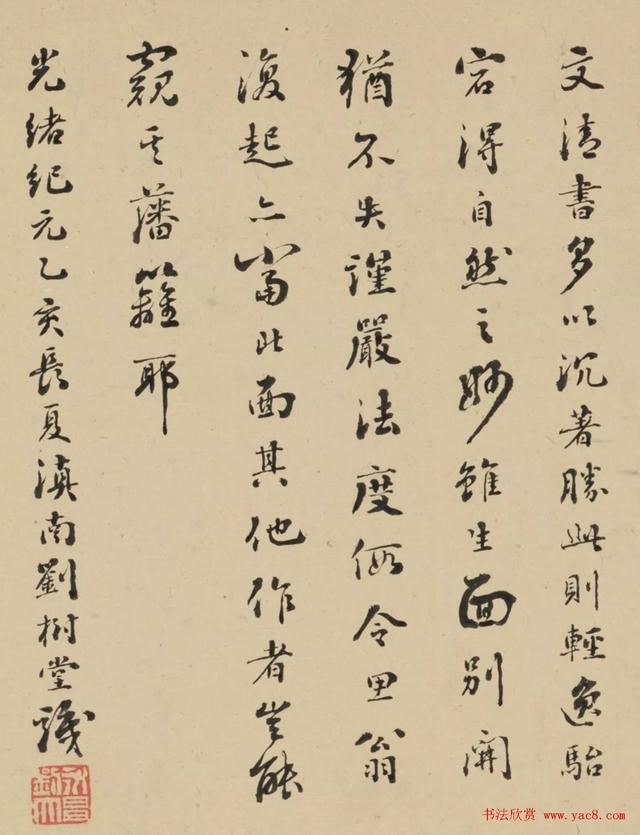 文清書多以沉著勝此則輕逸駘
宕得自然之妙雖生面別開
猶不失謹嚴法度假令思翁
復起亦當北面其他作者豈能
窺其藩籬耶
光緒紀元乙亥長夏滇南劉樹堂識
书法欣赏 www.yac8.com